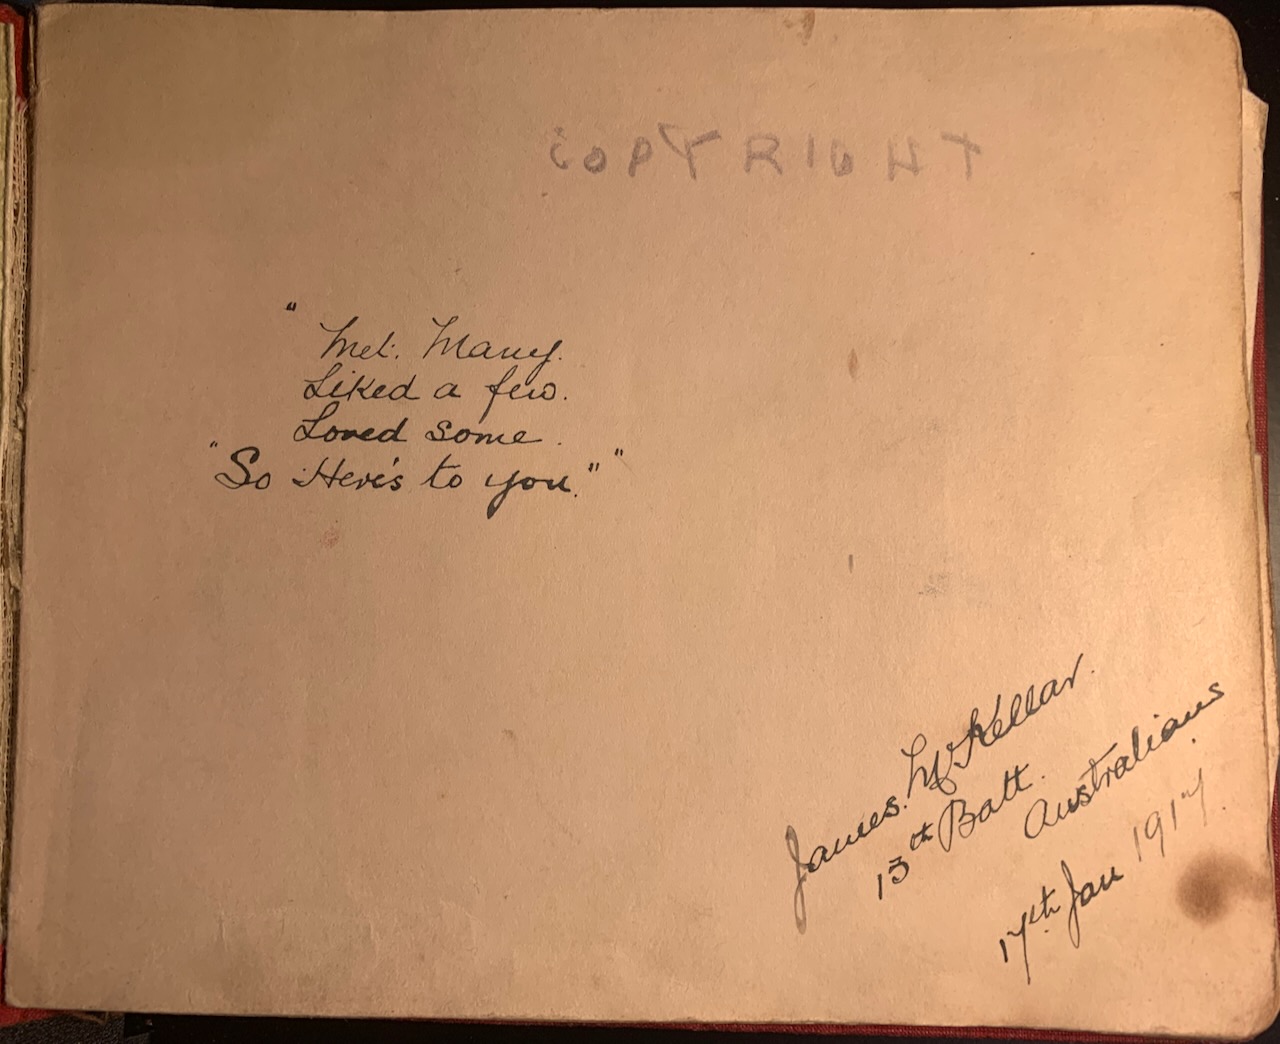 COPYRIGHT
"
Met. Many.
Liked a few.
Loved some.
"So Here's to you.""
James. McKellar.
13th Batt.
Australians
17th Jan 1917.